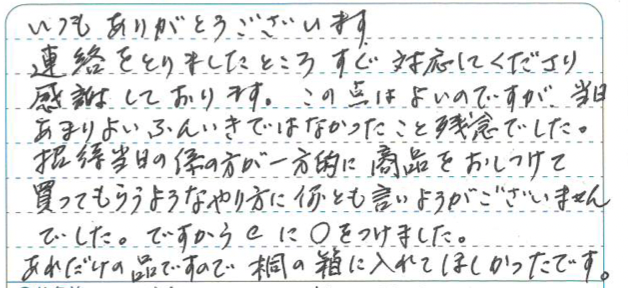 いつも ありがとうございます
連絡をとりましたところ すぐ 対応してくださり
感謝しております。 この点はよいのですが、当日
あまりよいふんいきではなかったこと残念でした。
招待当日の係の方が一方的に 商品をおしつけて
買ってもらうようなやり方に何とも言いようがございません
でした。ですから e に ○をつけました。
あれだけの品ですので 桐の箱に入れてほしかったです。